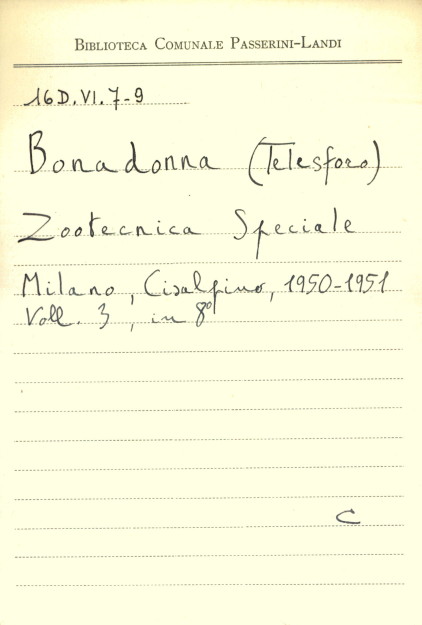 Biblioteca Comunale Passerini-Landi
16D.VI.7-9
Bonadonna (Telesforo)
Zootecnica Speciale
Milano, Cisalpino, 1950-1951
Voll. 3, in 8º
C